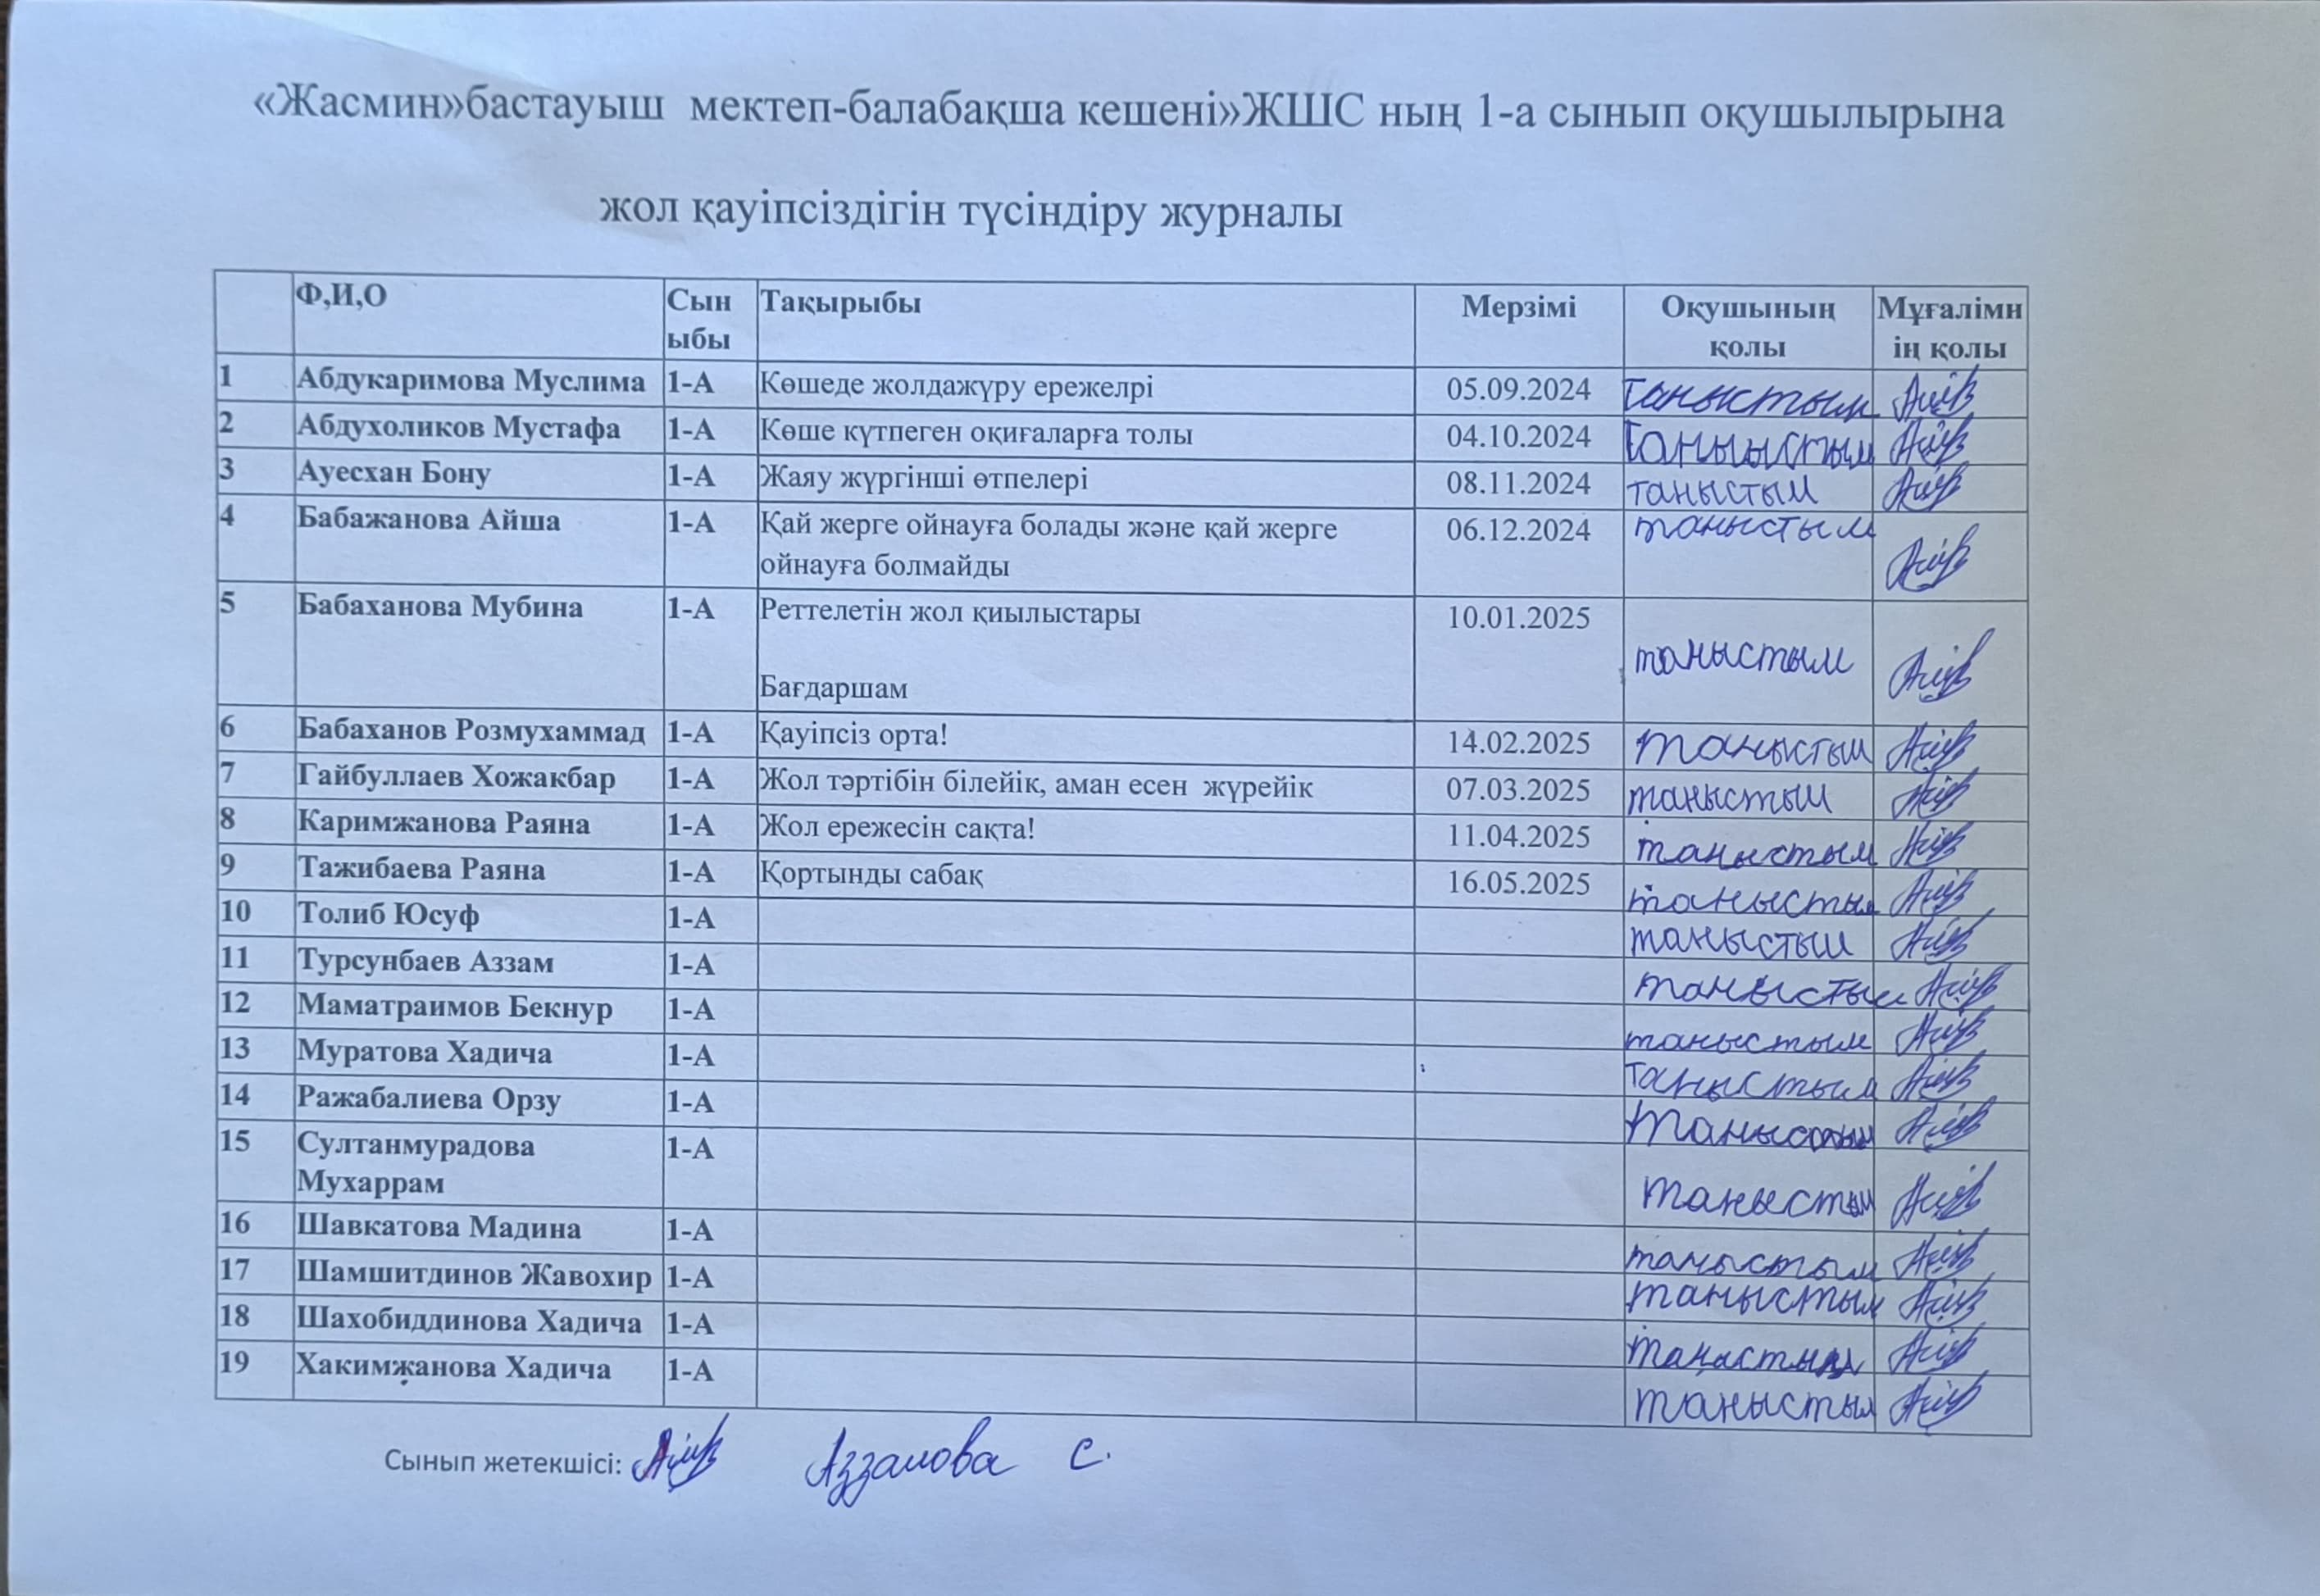 «Жасмин»бастауыш мектеп-балабақша кешені»ЖШС ның 1-а сынып оқушылырына
жол қауіпсіздігін түсіндіру журналы
Ф,И,О Сын Тақырыбы Мерзімі Оқушының Мұғалімн
ыбы қолы ің қолы
1 Абдукаримова Муслима 1-А Көшеде жолдажүру ережелрі 05.09.2024 таныстым
2 Абдухоликов Мустафа 1-А Көше күтпеген оқиғаларға толы 04.10.2024 таныыстым
3 Ауесхан Бону 1-А Жаяу жүргінші өтпелері 08.11.2024 таныстым
4 Бабажанова Айша 1-А Қай жерге ойнауға болады және қай жерге 06.12.2024 таныстым
ойнауға болмайды
5 Бабаханова Мубина 1-А Реттелетін жол қиылыстары 10.01.2025 таныстым
Бағдаршам
6 Бабаханов Розмухаммад 1-А Қауіпсіз орта! 14.02.2025 таныстым
7 Гайбуллаев Хожакбар 1-А Жол тәртібін білейік, аман есен жүрейік 07.03.2025 таныстым
8 Каримжанова Раяна 1-А Жол ережесін сақта! 11.04.2025 таныстым
9 Тажибаева Раяна 1-А Қортынды сабақ 16.05.2025 таныстым
10 Толиб Юсуф 1-А таныстым
11 Турсунбаев Аззам 1-А таныстым
12 Маматраимов Бекнур 1-А таныстым
13 Муратова Хадича 1-А таныстым
14 Ражабалиева Орзу 1-А
15 Султанмурадова 1-А таныстым
Мухаррам
16 Шавкатова Мадина 1-А таныстым
17 Шамшитдинов Жавохир 1-А таныстым
18 Шахобиддинова Хадича 1-А
19 Хакимжанова Хадича 1-А таныстым
Сынып жетекшісі: Аззамова С.